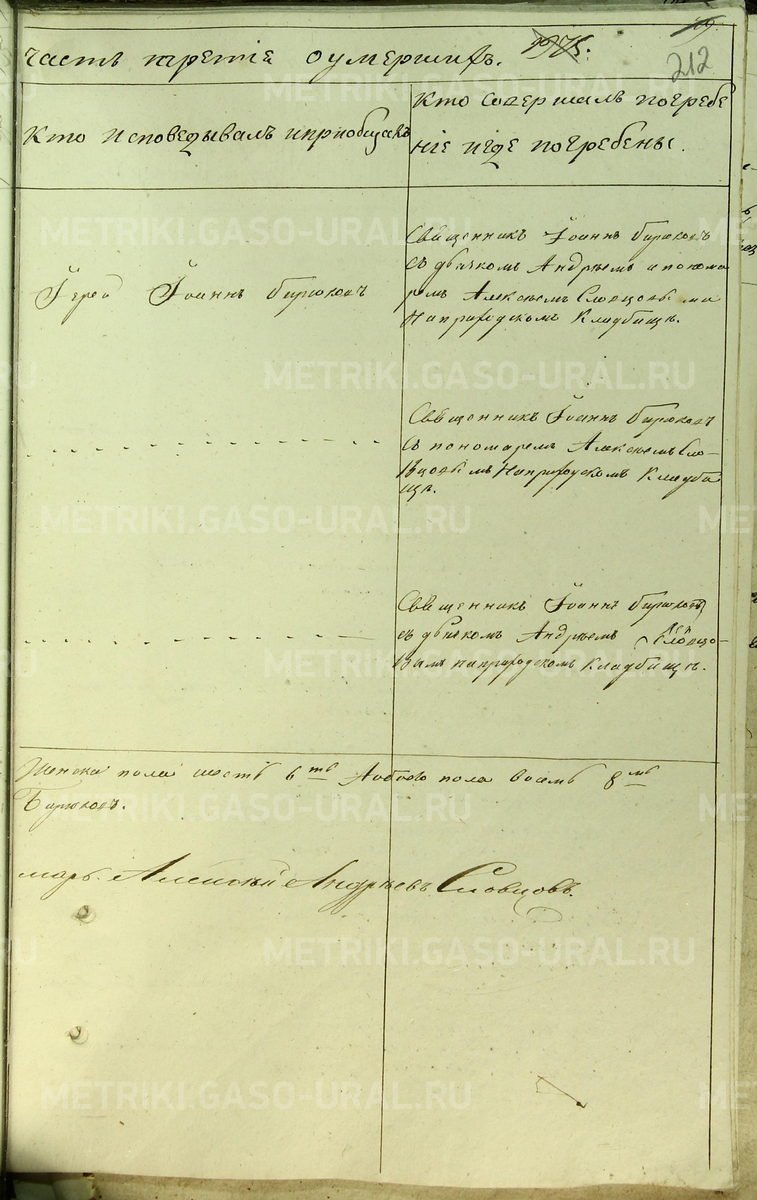 часть третiя оумершихъ.
212
Кто исповедывалъ ипрiобщалъ
Кто содержалъ погребе
нiе игде погребены.
Iерей Iоаннъ Бирюковъ
Священникъ Iоаннъ Бирюковъ
съ дьячкомъ Андрѣемъ и понома
ремъ Алексѣемъ Словцовыми
Наприходскомъ Кладбищѣ.
Священникъ Iоаннъ Бирюковъ
съ пономаремъ Алексѣемъ Сло-
вцовымъ Наприходскомъ Кладби
щѣ.
Священникъ Iоаннъ Бирюковъ
съ дьячкомъ Андрѣемъ Словцо-
вымъ наприходскомъ Кладбищѣ.
Женска пола шесть 6ть Аобоего пола восемь 8мь
Бирюковъ.
марь Алексѣй Андрѣевъ Словцовъ.
METRIKI.GASO-URAL.RU